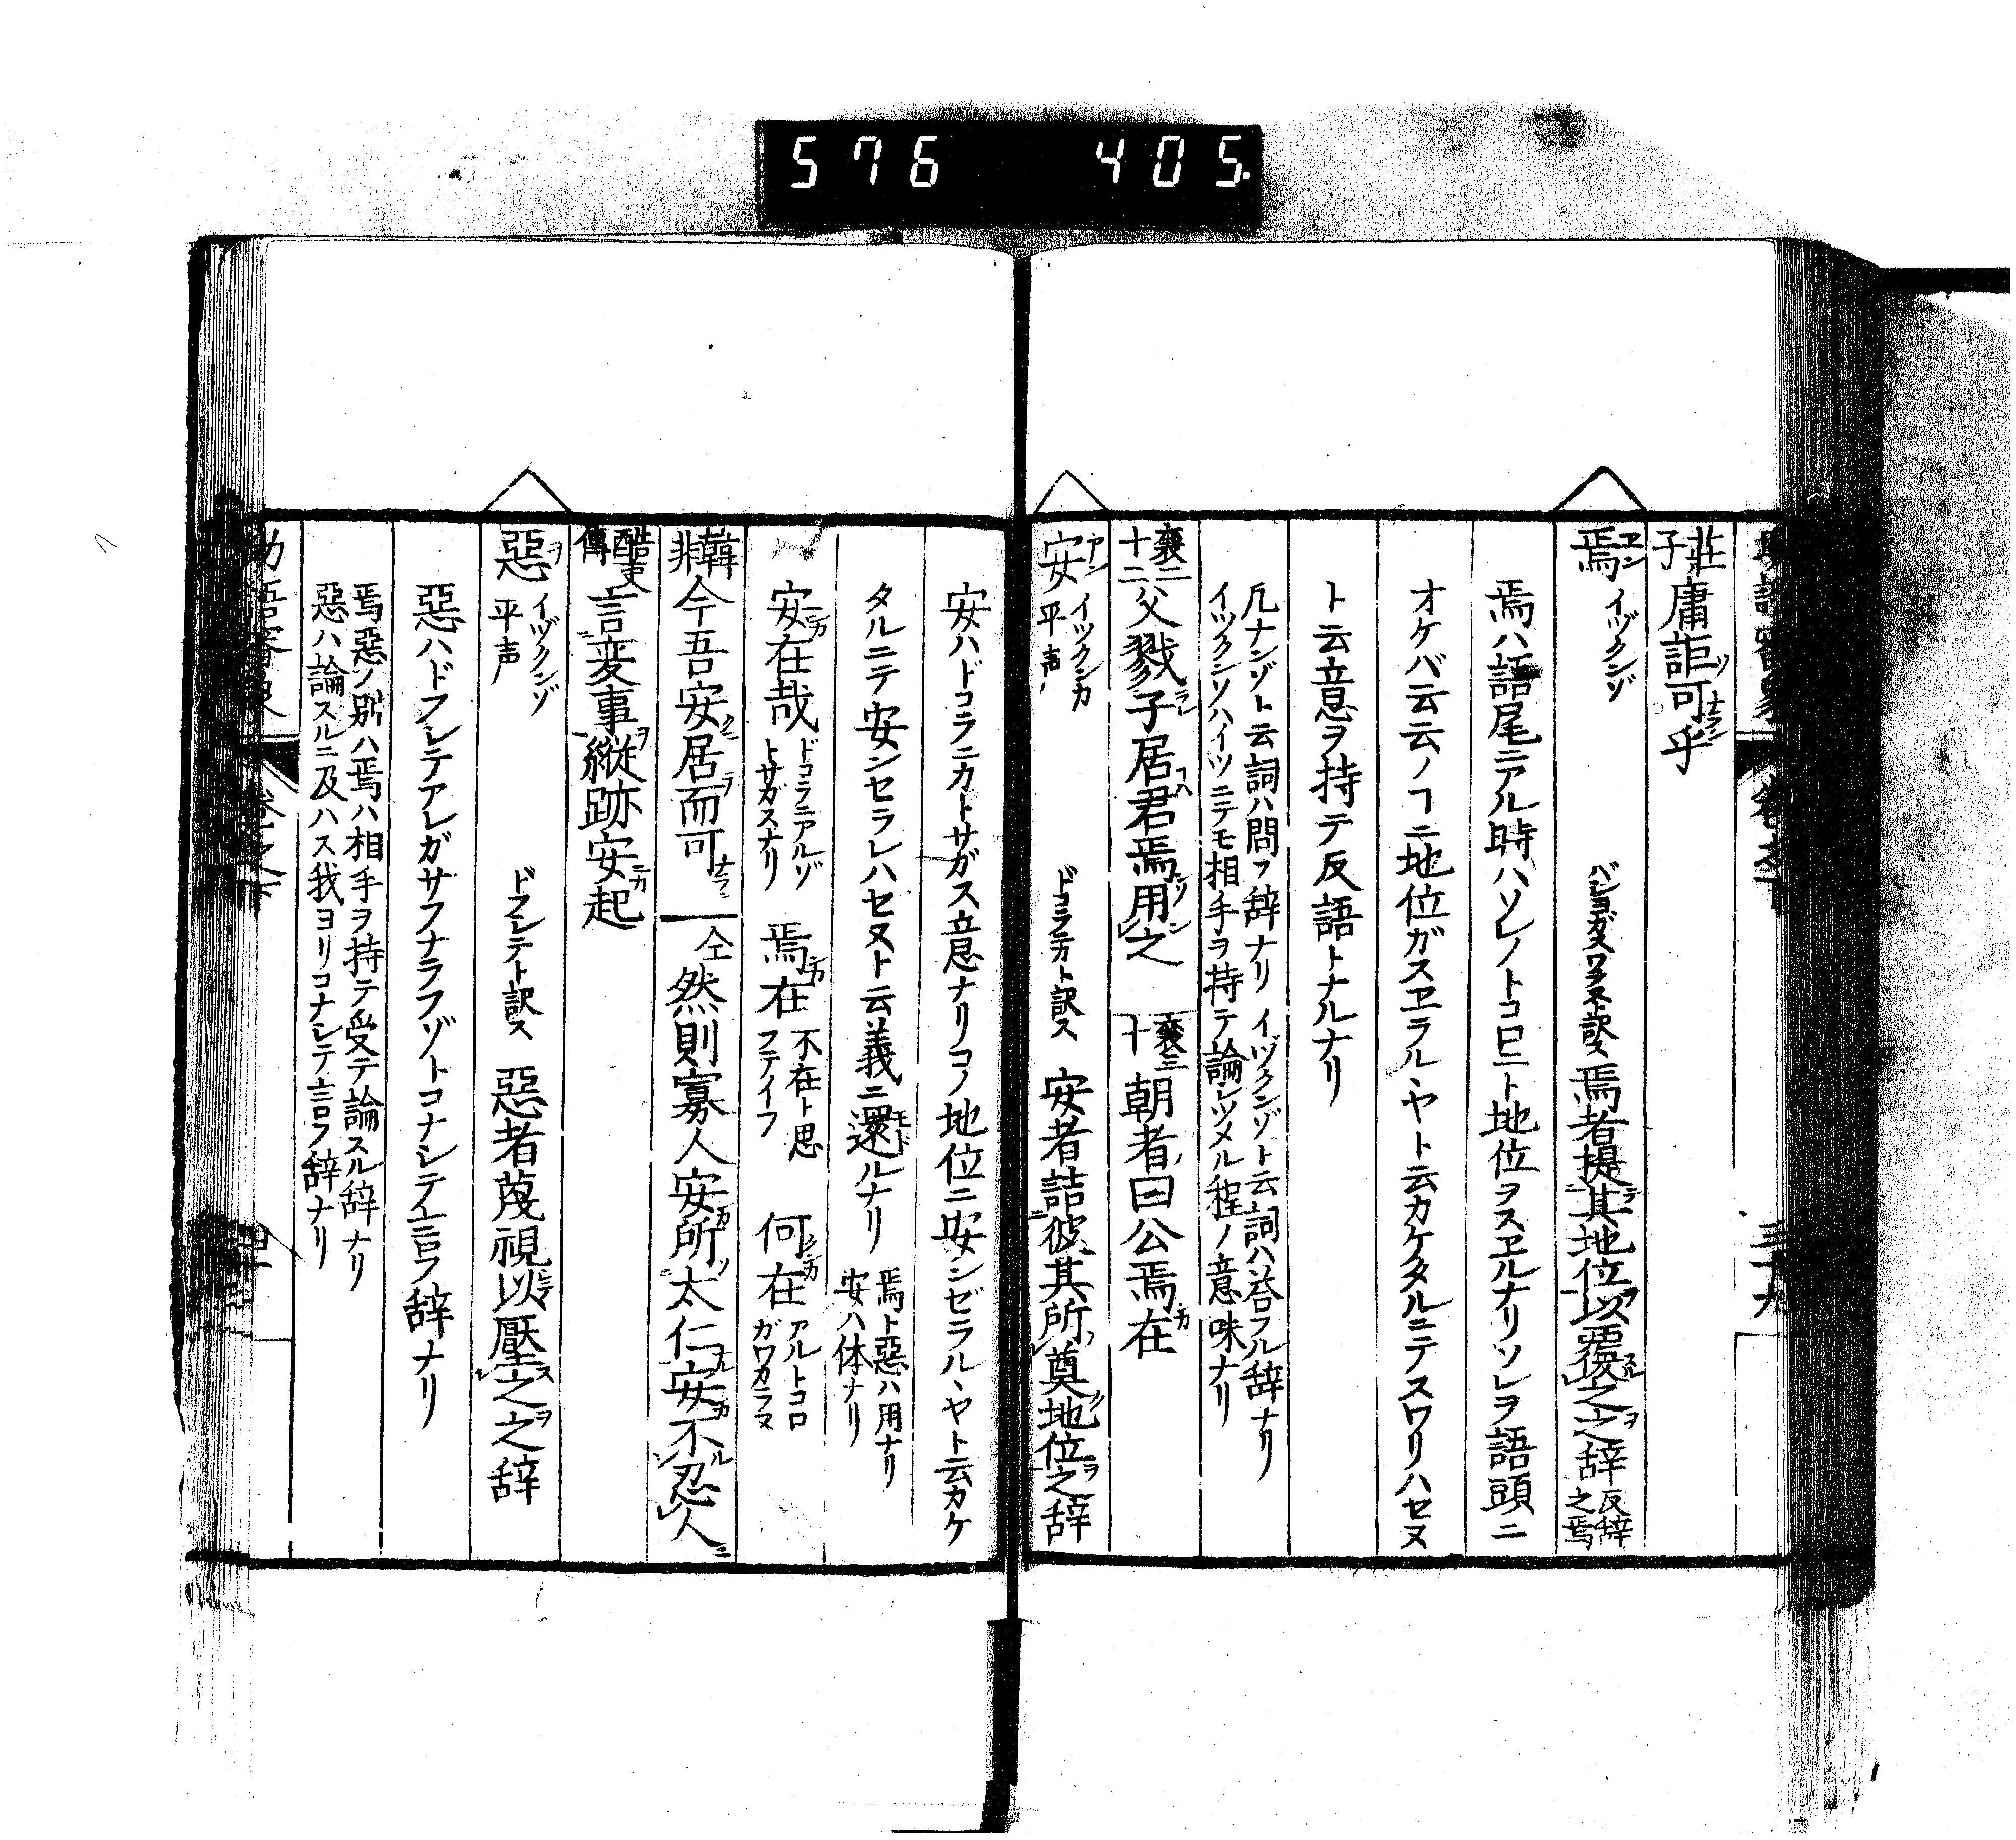 576 405.
莊子 庸詎可乎
焉 エン イヅクンゾ 焉者提其地位以覆之之辞 反辞之焉
焉ハ語尾ニアル時ハソレノトコロニト地位ヲスヱルナリソレヲ語頭ニ
オケバ云云ノヿニ地位ガスヱラルヽヤト云カケタルニテスワリハセヌ
ト云意ヲ持テ反語トナルナリ
凡ナンゾト云詞ハ問フ辞ナリ イヅクンゾト云詞ハ答フル辞ナリ
イヅクンソハイツニテモ相手ヲ持テ論シツメル程ノ意味ナリ
襄二十二 父戮子居君焉用之 襄三十 朝者曰公焉在
安 アン 平声 イヅクンカ ドコラニカト訳ス 安者詰彼其所奠地位之辞
安ハドコラニカトサガス意ナリコノ地位ニ安ンゼラルヽヤト云カケ
タルニテ安ンセラレハセヌト云義ニ還ルナリ 焉ト惡ハ用ナリ 安ハ体ナリ
安在哉 ドコラニアルゾトサガスナリ 焉在 不在ト思フテイフ 何在 アルトコロガワカラヌ
韓非 今吾安居而可 仝 然則寡人安所太仁安不忍人
酷吏傳 言変事縦跡安起
惡 ヲ 平声 イヅクンゾ ドフシテト訳ス 惡者蔑視以壓之之辞
惡ハドフシテアレガサフナラフゾトコナシテ言フ辞ナリ
焉惡ノ別ハ焉ハ相手ヲ持テ受テ論スル辞ナリ
惡ハ論スルニ及ハス我ヨリコナシテ言フ辞ナリ